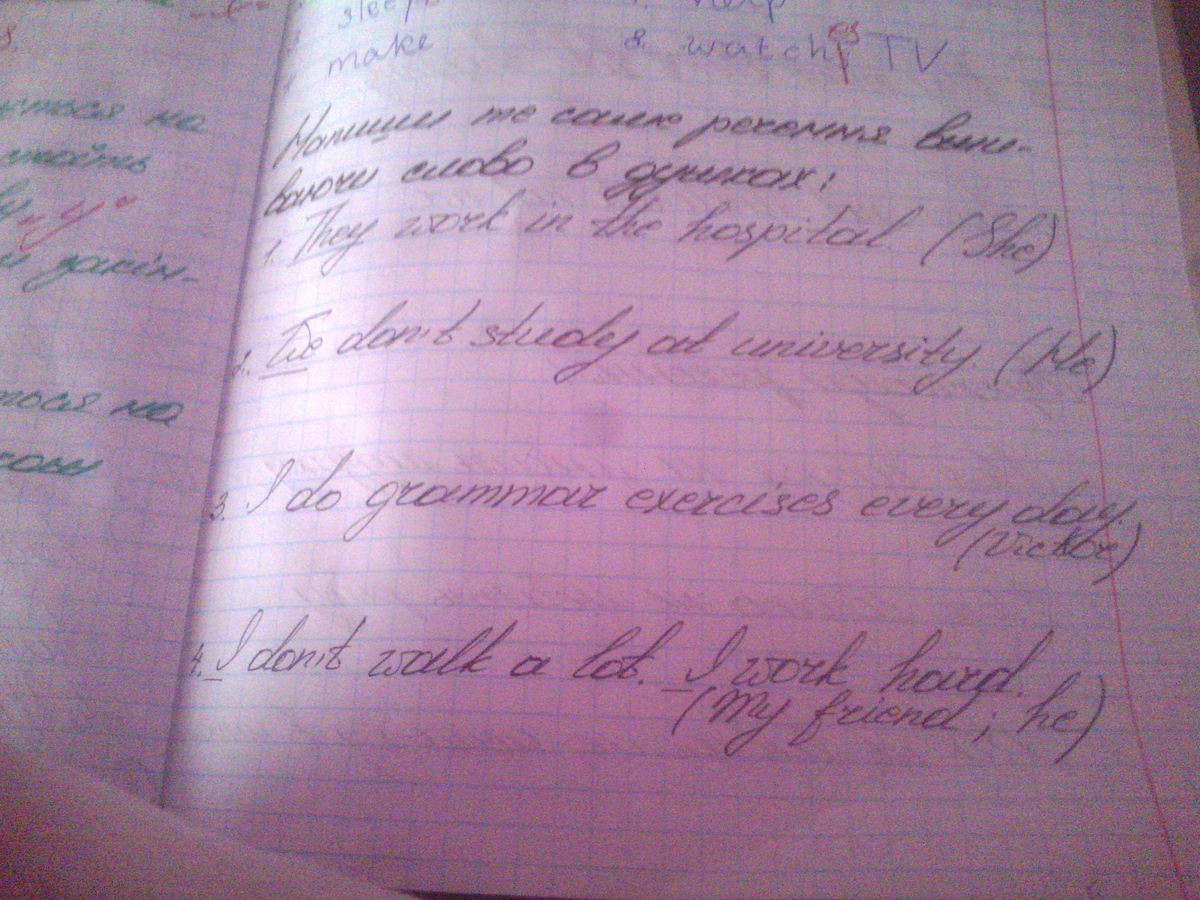 s.
ється на
у "у"
и закін-
ться на
sleep
7. help
make
8. watches TV
Напиши те саме речення вжи-
ваючи слово в дужках:
1. They work in the hospital (She)
2. We don't study at university. (He)
3. I do grammar exercises every day.
(Victor)
4. I don't walk a lot. I work hard.
(My friend; he)